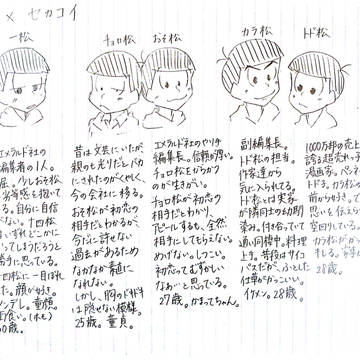 × セカコイ
一松
チョロ松
おそ松
カラ松
トド松
エメラルド社の
編集者の1人。
少しおそ松
劣等感を抱いて
る。自分に自信
がない。十四松
ってしまうだろうと
手に思っている。
十四松に一目ぼれ
た。顔が好き。
ンデレ。童顔。
昔は文芸にいたが、
親の七光りだとバカ
にされたのがくやしく
今の会社に移る。
おそ松が初恋の
相手だとわかるが、
今さらに許せない
過去があるため
なかなか素直に
なれない。
しかし、胸のドキドキ
は隠せない模様。
25歳。童貞。
エメラルド社のやり手
編集長。信頼が厚い。
チョロ松をからかう
のが生きがい。
チョロ松が初恋の
相手だとわかり、
アピールするも、全然
相手にしてもらえない。
めげない。しつこい。
初恋ってむずかしい
なあ…と思っている。
27歳。かまってちゃん。
副編集長。
トド松の担当。
作家達から
気に入られてる。
トド松とは実家
が隣同士の幼馴
染。付き合っていて
通い同棲中。料理
上手。普段はサイコ
パスだが、ふとした
仕草がかっこいい。
イケメン。28歳。
1000万部の売上
誇る超売れっ子
漫画家。
前から好きで、
思いを伝え
空回りしている。
カラ松がかっこ
28歳。